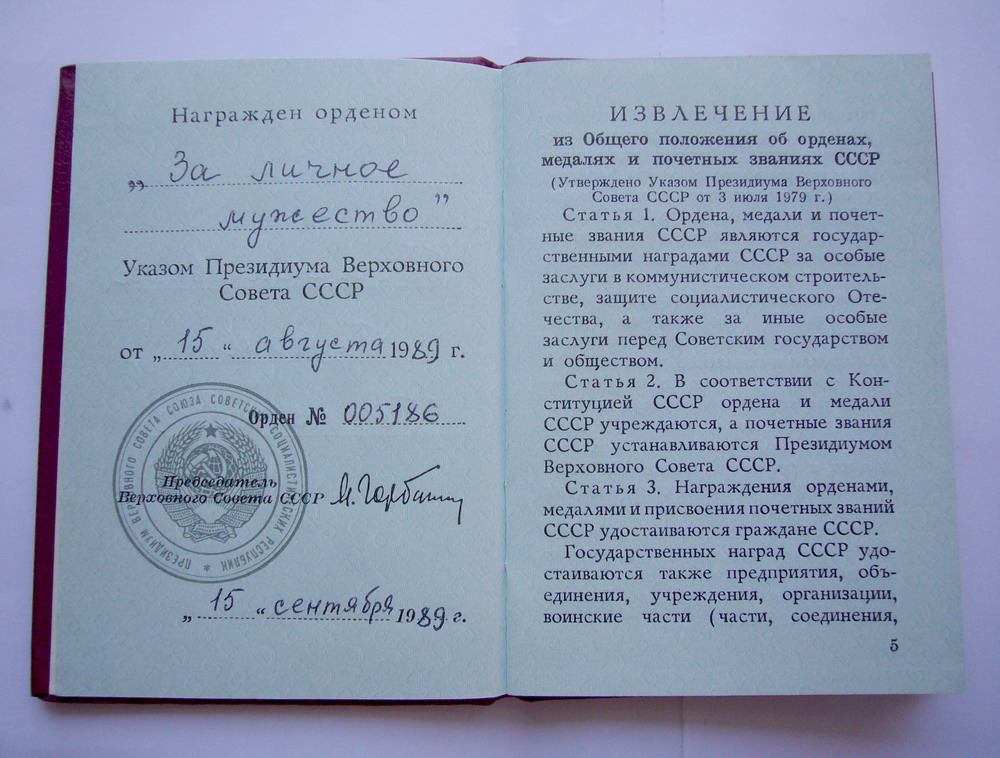 Награжден орденом
„ За личное
мужество"
Указом Президиума Верховного
Совета СССР
от „ 15 “ августа 1989 г.
Орден № 005186
Председатель
Верховного Совета СССР М. Горбачев
ПРЕЗИДИУМ ВЕРХОВНОГО СОВЕТА СОЮЗА СОВЕТСКИХ СОЦИАЛИСТИЧЕСКИХ РЕСПУБЛИК *
„ 15 “ сентября 1989 г.
ИЗВЛЕЧЕНИЕ
из Общего положения об орденах,
медалях и почетных званиях СССР
(Утверждено Указом Президиума Верховного
Совета СССР от 3 июля 1979 г.)
Статья 1. Ордена, медали и почет-
ные звания СССР являются государ-
ственными наградами СССР за особые
заслуги в коммунистическом строитель-
стве, защите социалистического Оте-
чества, а также за иные особые
заслуги перед Советским государством
и обществом.
Статья 2. В соответствии с Кон-
ституцией СССР ордена и медали
СССР учреждаются, а почетные звания
СССР устанавливаются Президиумом
Верховного Совета СССР.
Статья 3. Награждения орденами,
медалями и присвоения почетных званий
СССР удостаиваются граждане СССР.
Государственных наград СССР удо-
стаиваются также предприятия, объ-
единения, учреждения, организации,
воинские части (части, соединения,
5